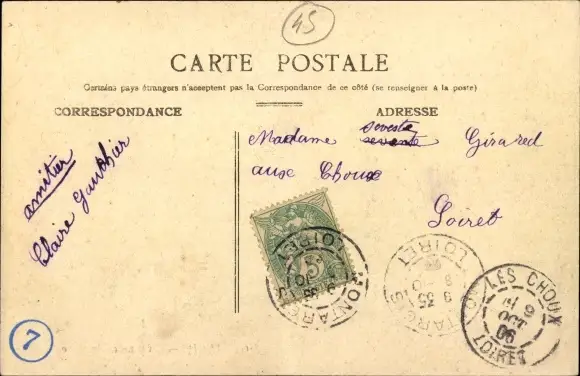 45
CARTE POSTALE
Certains pays étrangers n'acceptent pas la Correspondance de ce côté (se renseigner à la poste)
CORRESPONDANCE
ADRESSE
amitier
Claire Gauthier
Madame sevestre Girared
aux Choux
Loiret
5
MONTARGIS
LOIRET
9 35
LES CHOUX
9
OCT
06
LOIRET
7